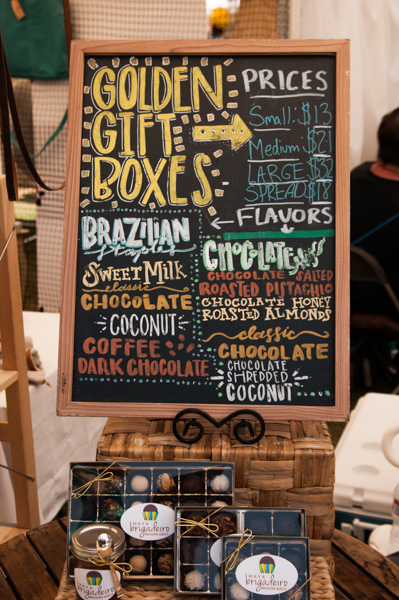 GOLDEN
GIFT
BOXES
PRICES
Small: $13
Medium $21
LARGE $32
SPREAD $18
FLAVORS
BRAZILIAN
staples
SWEET MILK
classic
CHOCOLATE
COCONUT
COFFEE
DARK CHOCOLATE
CHOCOLATE SALTED
ROASTED PISTACHIO
CHOCOLATE HONEY
ROASTED ALMONDS
classic
CHOCOLATE
CHOCOLATE
SHREDDED
COCONUT
MAYA
brigadeiro
brigadeiro
MAYA
brigadeiro